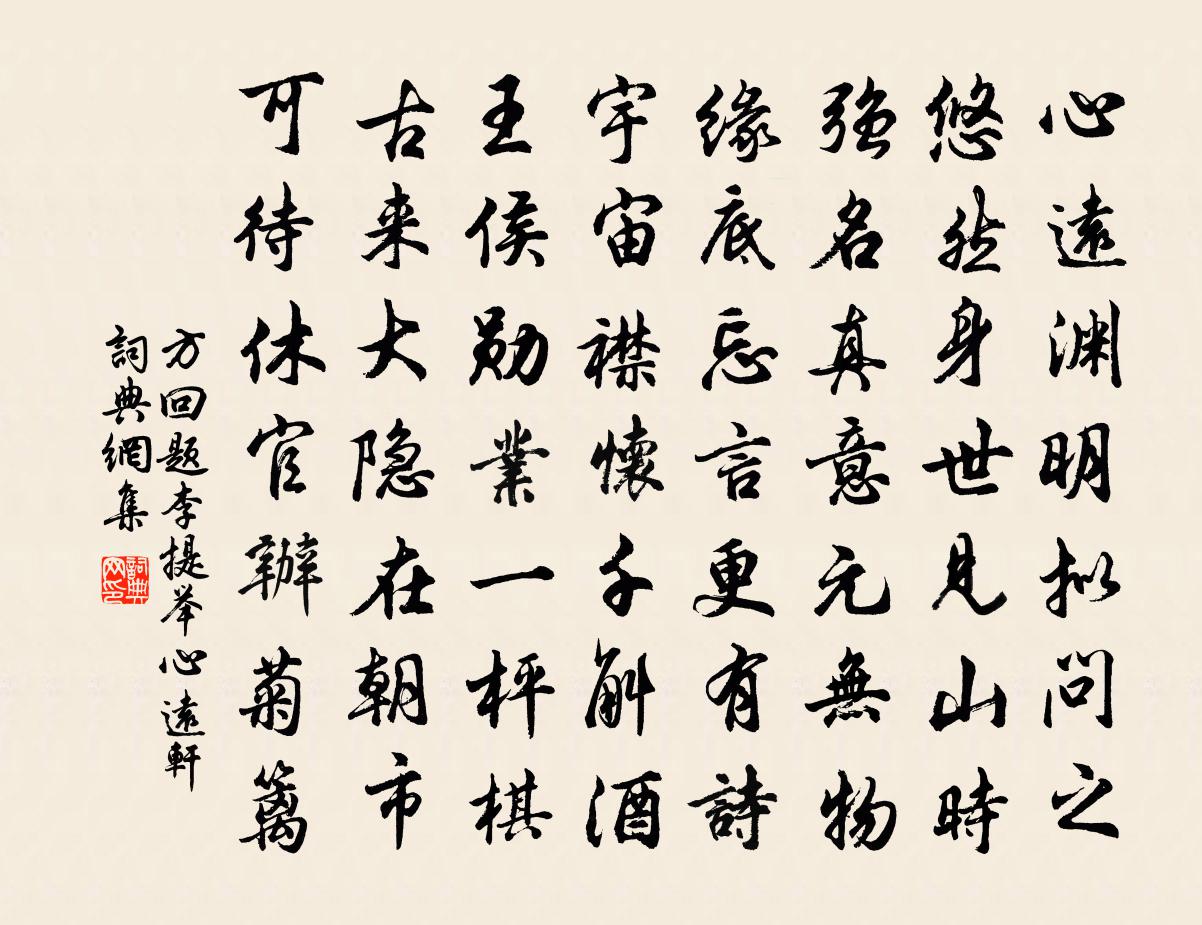 心遠渊明拟问之
悠然身世見山時
强名真意元無物
缘底忘言更有詩
宇宙襟懷千斛酒
王侯勋業一枰棋
古来大隐在朝市
可待休官辦菊篱
方回题李提举心遠軒
詞典網集
詞典网印